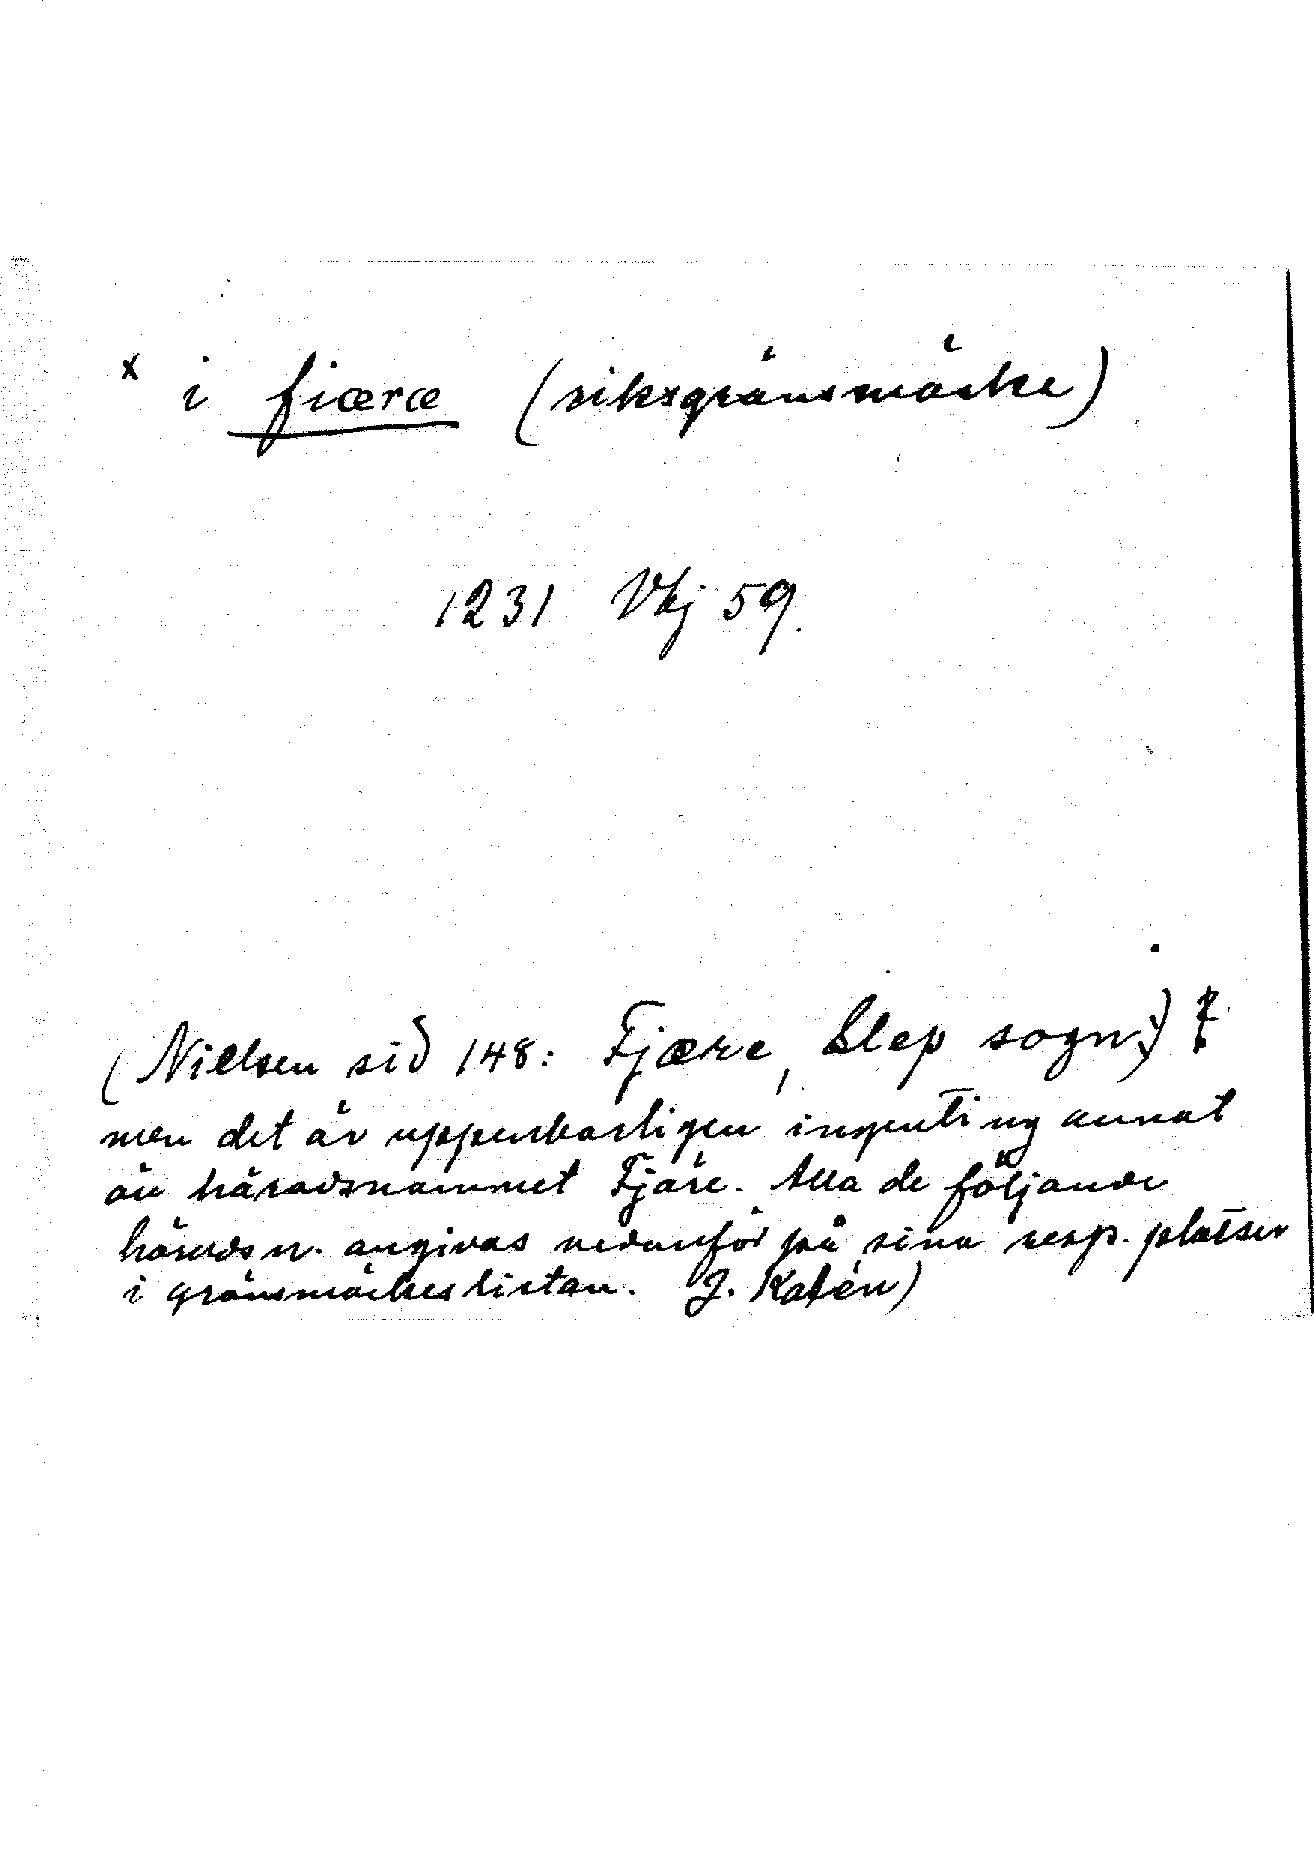 x i fiæræ (riksgränsmärke)
1231 Vkj 59.
(Nielsen sid 148: Fjære, Slep sogn;)
men det är uppenbarligen ingenting annat
än häradsnamnet Fjäre. Alla de följande
häradsn. angivas nedanför på sina resp. platser
i gränsmärkeslistan. J. Kalén)